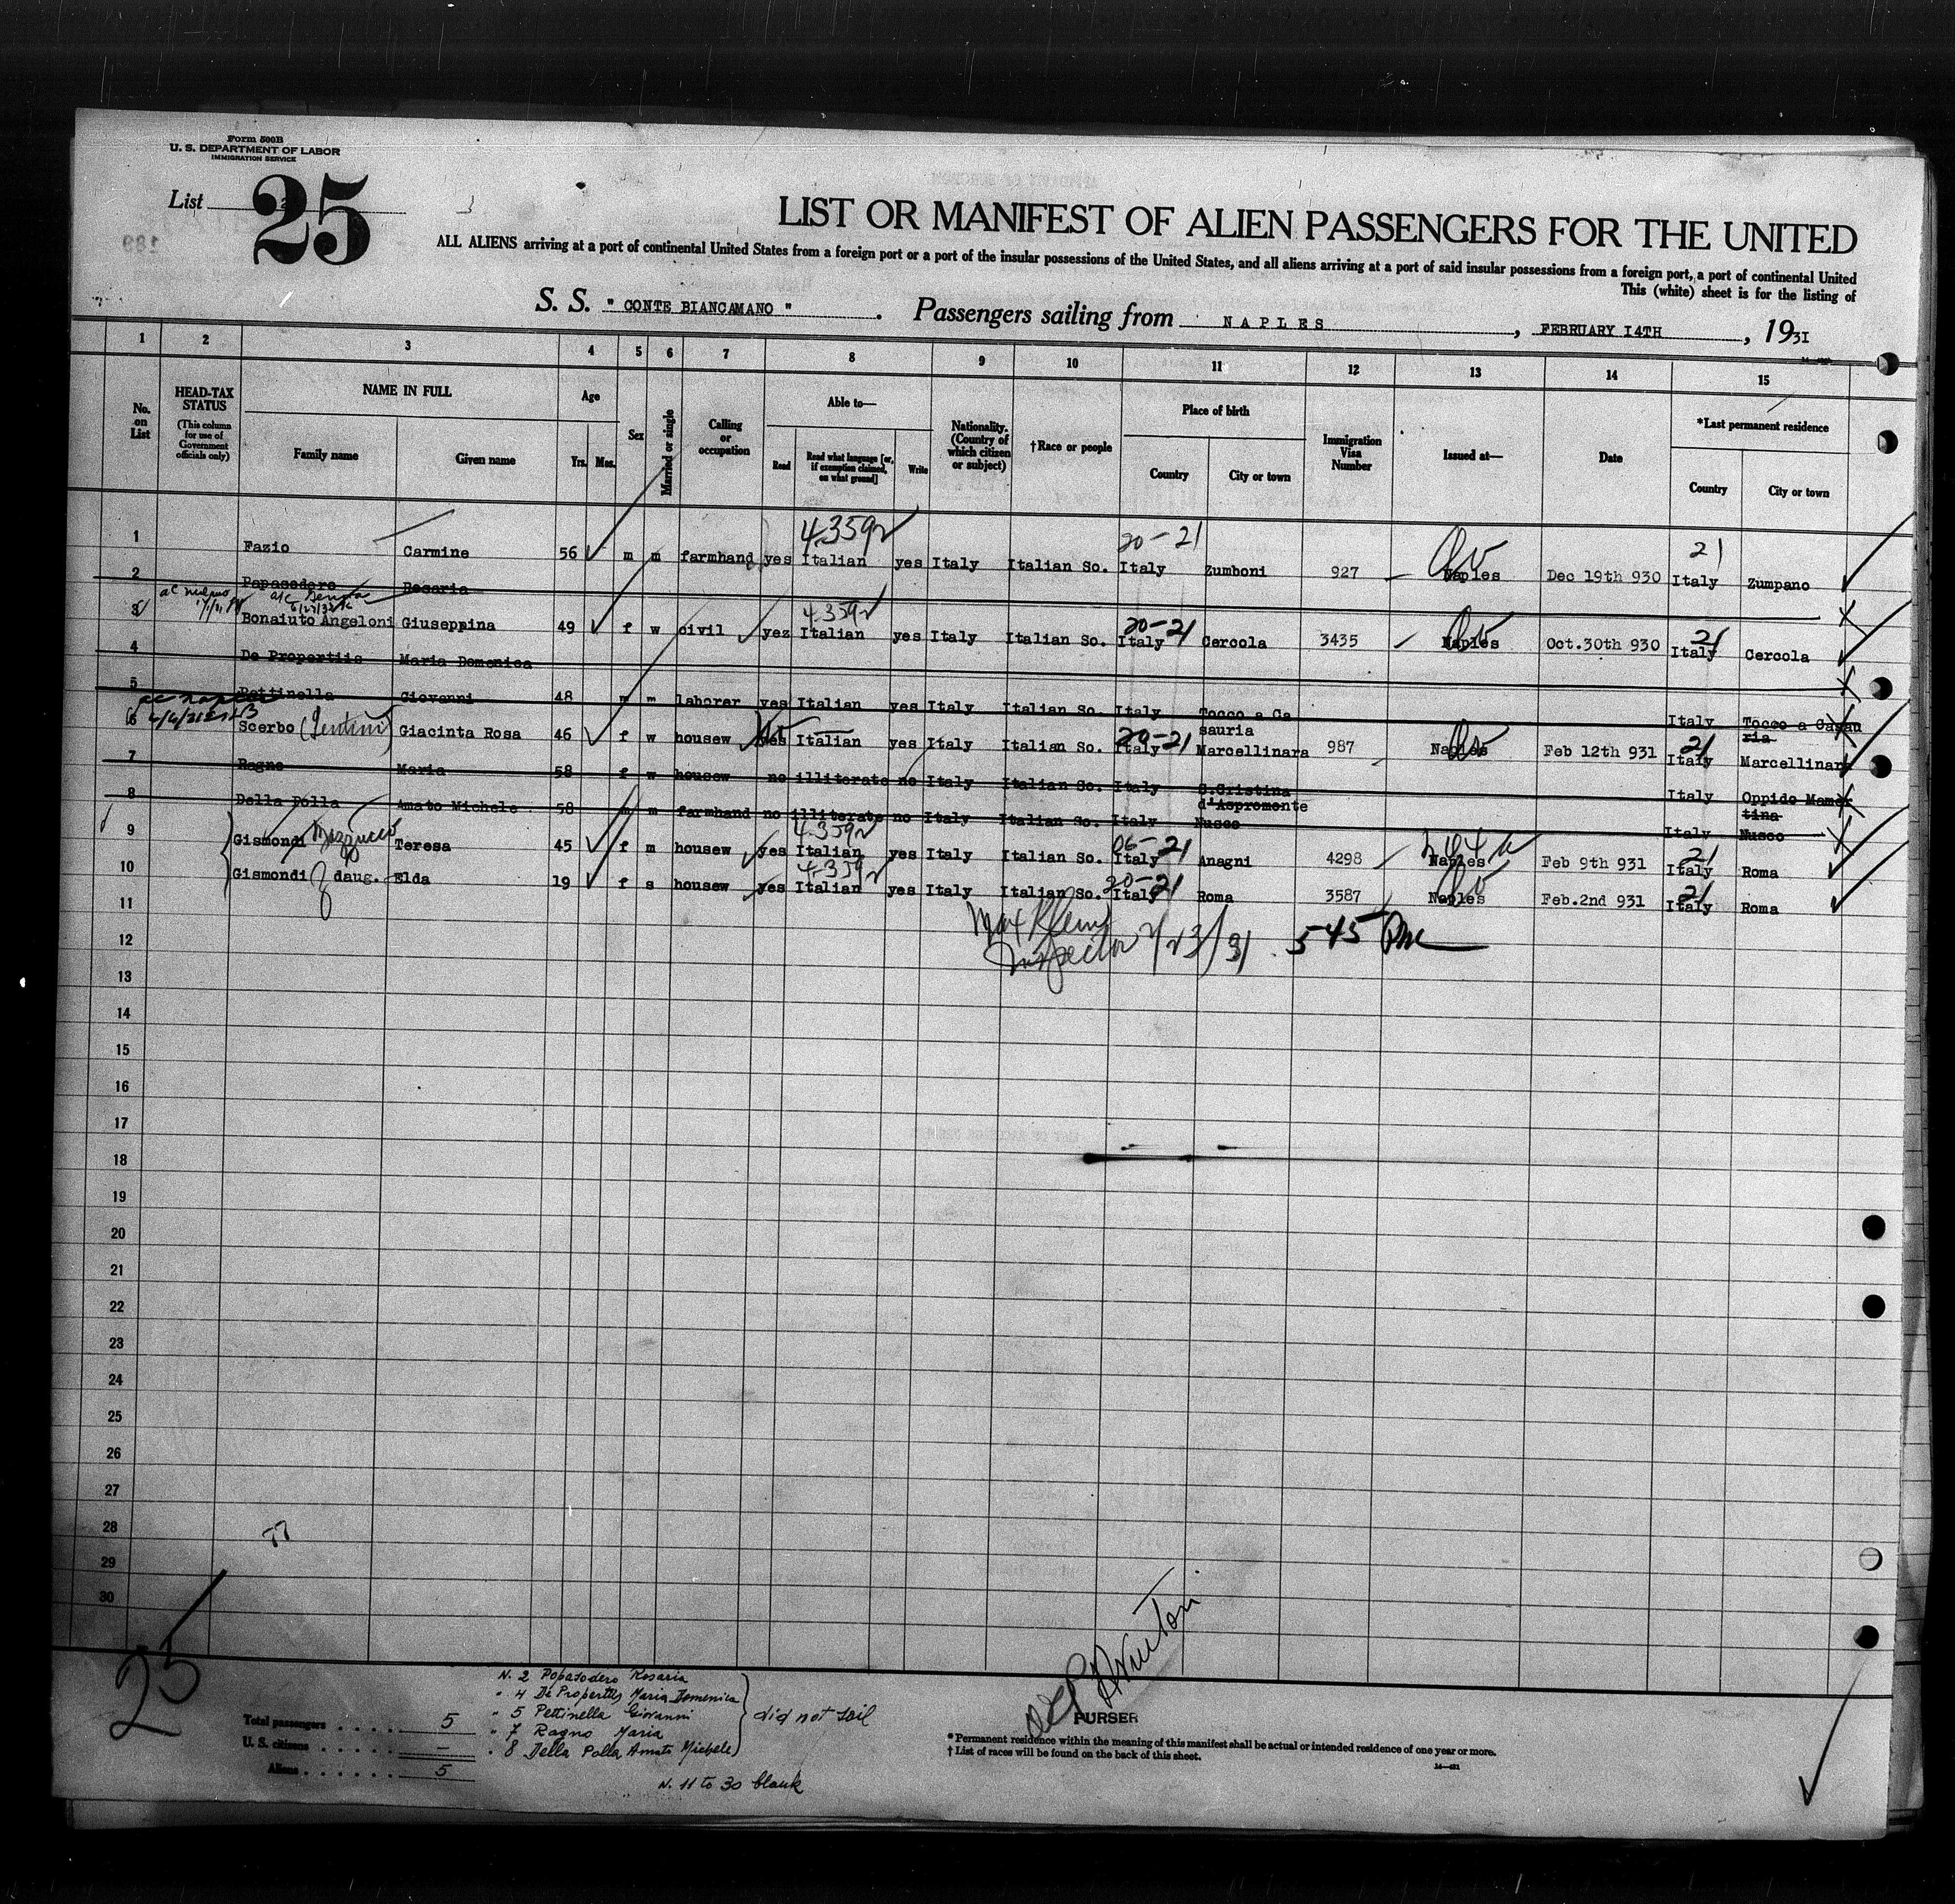 Form 500B
U. S. DEPARTMENT OF LABOR
IMMIGRATION SERVICE
List 25
LIST OR MANIFEST OF ALIEN PASSENGERS FOR THE UNITED
ALL ALIENS arriving at a port of continental United States from a foreign port or a port of the insular possessions of the United States, and all aliens arriving at a port of said insular possessions from a foreign port, a port of continental United
This (white) sheet is for the listing of
S. S. " CONTE BIANCAMANO " . Passengers sailing from NAPLES , FEBRUARY 14TH , 1931
1 2 3 4 5 6 7 8 9 10 11 12 13 14 15
No. on List
HEAD-TAX STATUS
(This column for use of Government officials only)
NAME IN FULL
Family name
Given name
Age
Yrs. Mos.
Sex
Married or single
Calling or occupation
Able to—
Read
Read what language [or, if exemption claimed, on what ground]
Write
Nationality. (Country of which citizen or subject)
†Race or people
Place of birth
Country
City or town
Immigration Visa Number
Issued at—
Date
*Last permanent residence
Country
City or town
4-359
20-21
21
1 Fazio Carmine 56 m m farmhand yes Italian yes Italy Italian So. Italy Zumboni 927 Naples Dec 19th 930 Italy Zumpano
2 Papasodero Rosaria
4-359
20-21
21
3 Bonaiuto Angeloni Giuseppina 49 f w civil yez Italian yes Italy Italian So. Italy Cercola 3435 Naples Oct.30th 930 Italy Cercola
4 De Propertiis Maria Domenica
5 Pettinella Giovanni 48 m m laborer yes Italian yes Italy Italian So. Italy Tocco a Ca sauria Italy Tocco a Casau ria
20-21
21
6 Scerbo (Lentini) Giacinta Rosa 46 f w housew yes Italian yes Italy Italian So. Italy Marcellinara 987 Naples Feb 12th 931 Italy Marcellinara
7 Ragno Maria 58 f w housew no illiterate no Italy Italian So. Italy S.Cristina d'Aspromonte Italy Oppido Mamer tina
8 Della Polla Amato Michele 58 m m farmhand no illiterate no Italy Italian So. Italy Nusco Italy Nusco
4-359
06-21
21
9 Gismondi Teresa 45 f m housew yes Italian yes Italy Italian So. Italy Anagni 4298 Naples Feb 9th 931 Italy Roma
4-359
20-21
21
10 Gismondi daug. Elda 19 f s housew yes Italian yes Italy Italian So. Italy Roma 3587 Naples Feb.2nd 931 Italy Roma
11
Inspector 2/23/31 545 PM
12
13
14
15
16
17
18
19
20
21
22
23
24
25
26
27
28
29
30
25
N. 2 Popasodero Rosaria
" 4 De Propertiis Maria Domenica
" 5 Pettinella Giovanni
" 7 Ragno Maria
" 8 Della Polla Amato Michele
did not sail
N. 11 to 30 blank
Total passengers . . . . 5
U. S. citizens . . . . . –
Aliens . . . . . . 5
PURSER
* Permanent residence within the meaning of this manifest shall be actual or intended residence of one year or more.
† List of races will be found on the back of this sheet.